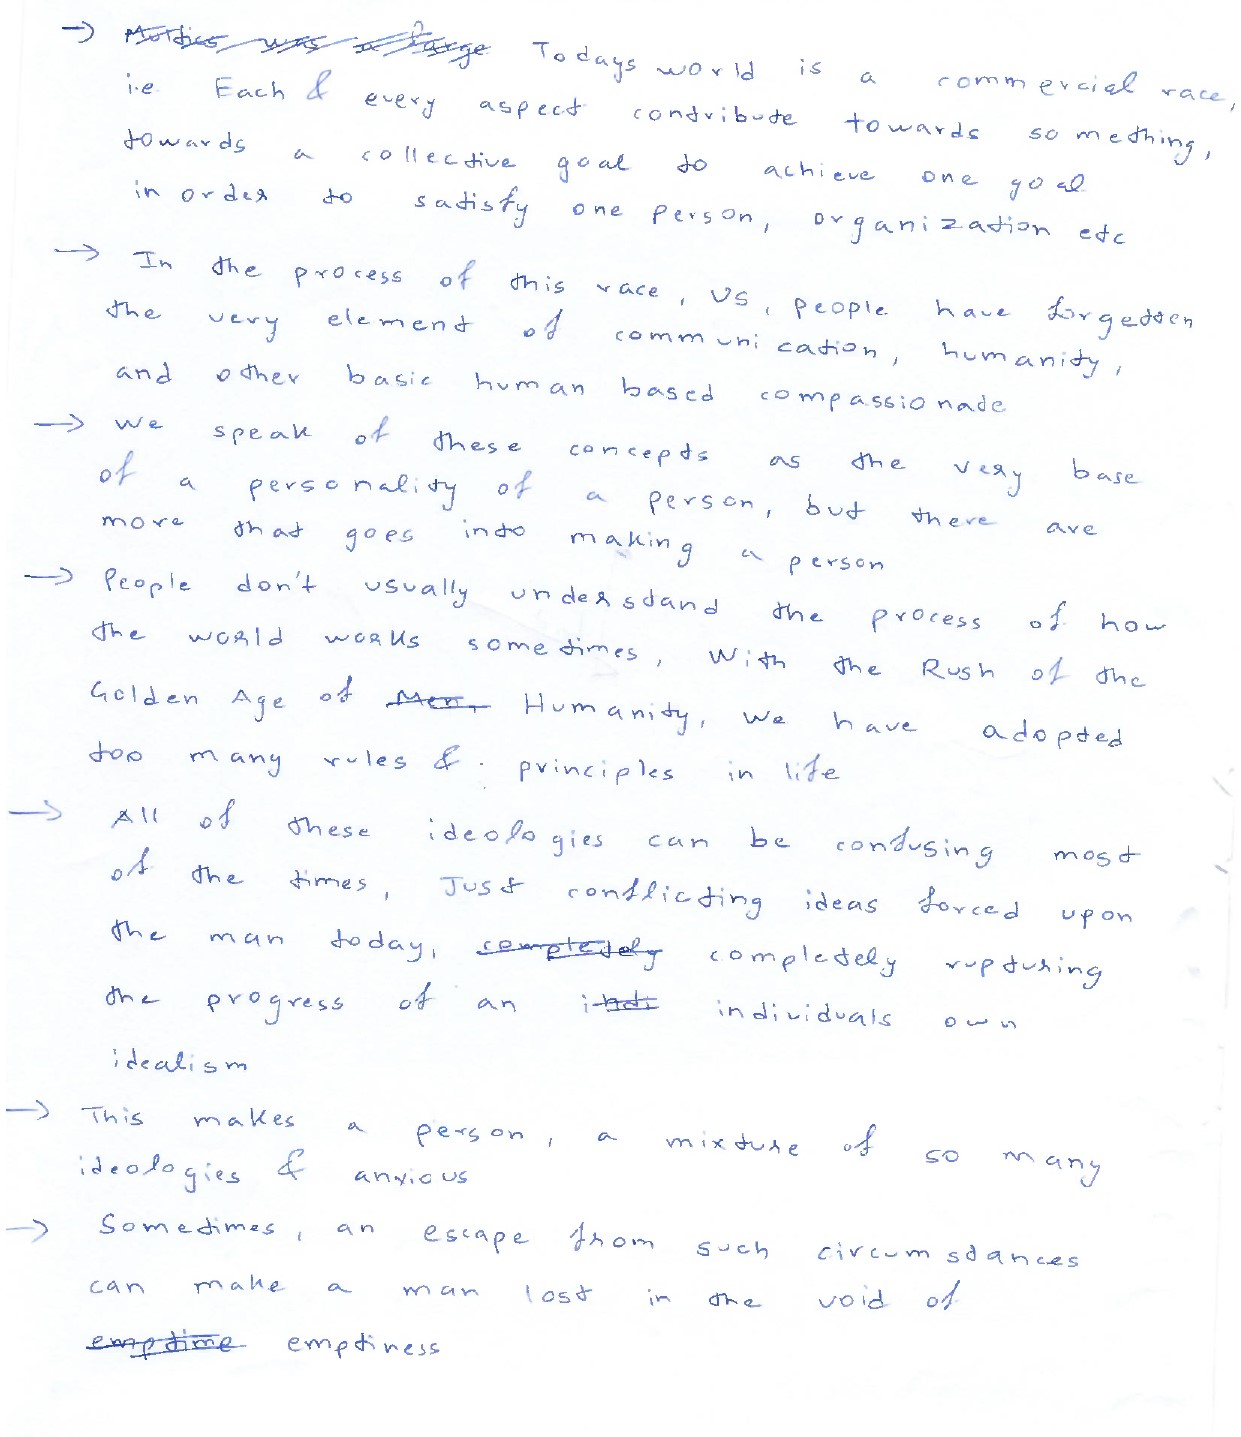 → Todays world is a commercial race,
i.e Each & every aspect contribute towards something,
towards a collective goal to achieve one goal
in order to satisfy one person, organization etc
→ In the process of this race, us, people have forgetten
the very element of communication, humanity,
and other basic human based compassionate
→ We speak of these concepts as the very base
of a personality of a person, but there are
more that goes into making a person
→ People don't usually understand the process of how
the world works sometimes, With the Rush of the
Golden Age of Men, Humanity, we have adopted
too many rules & principles in life
→ All of these ideologies can be confusing most
of the times, Just conflicting ideas forced upon
the man today, completely completely rupturing
the progress of an individuals own
idealism
→ This makes a person, a mixture of so many
ideologies & anxious
→ Sometimes, an escape from such circumstances
can make a man lost in the void of
emptime emptiness